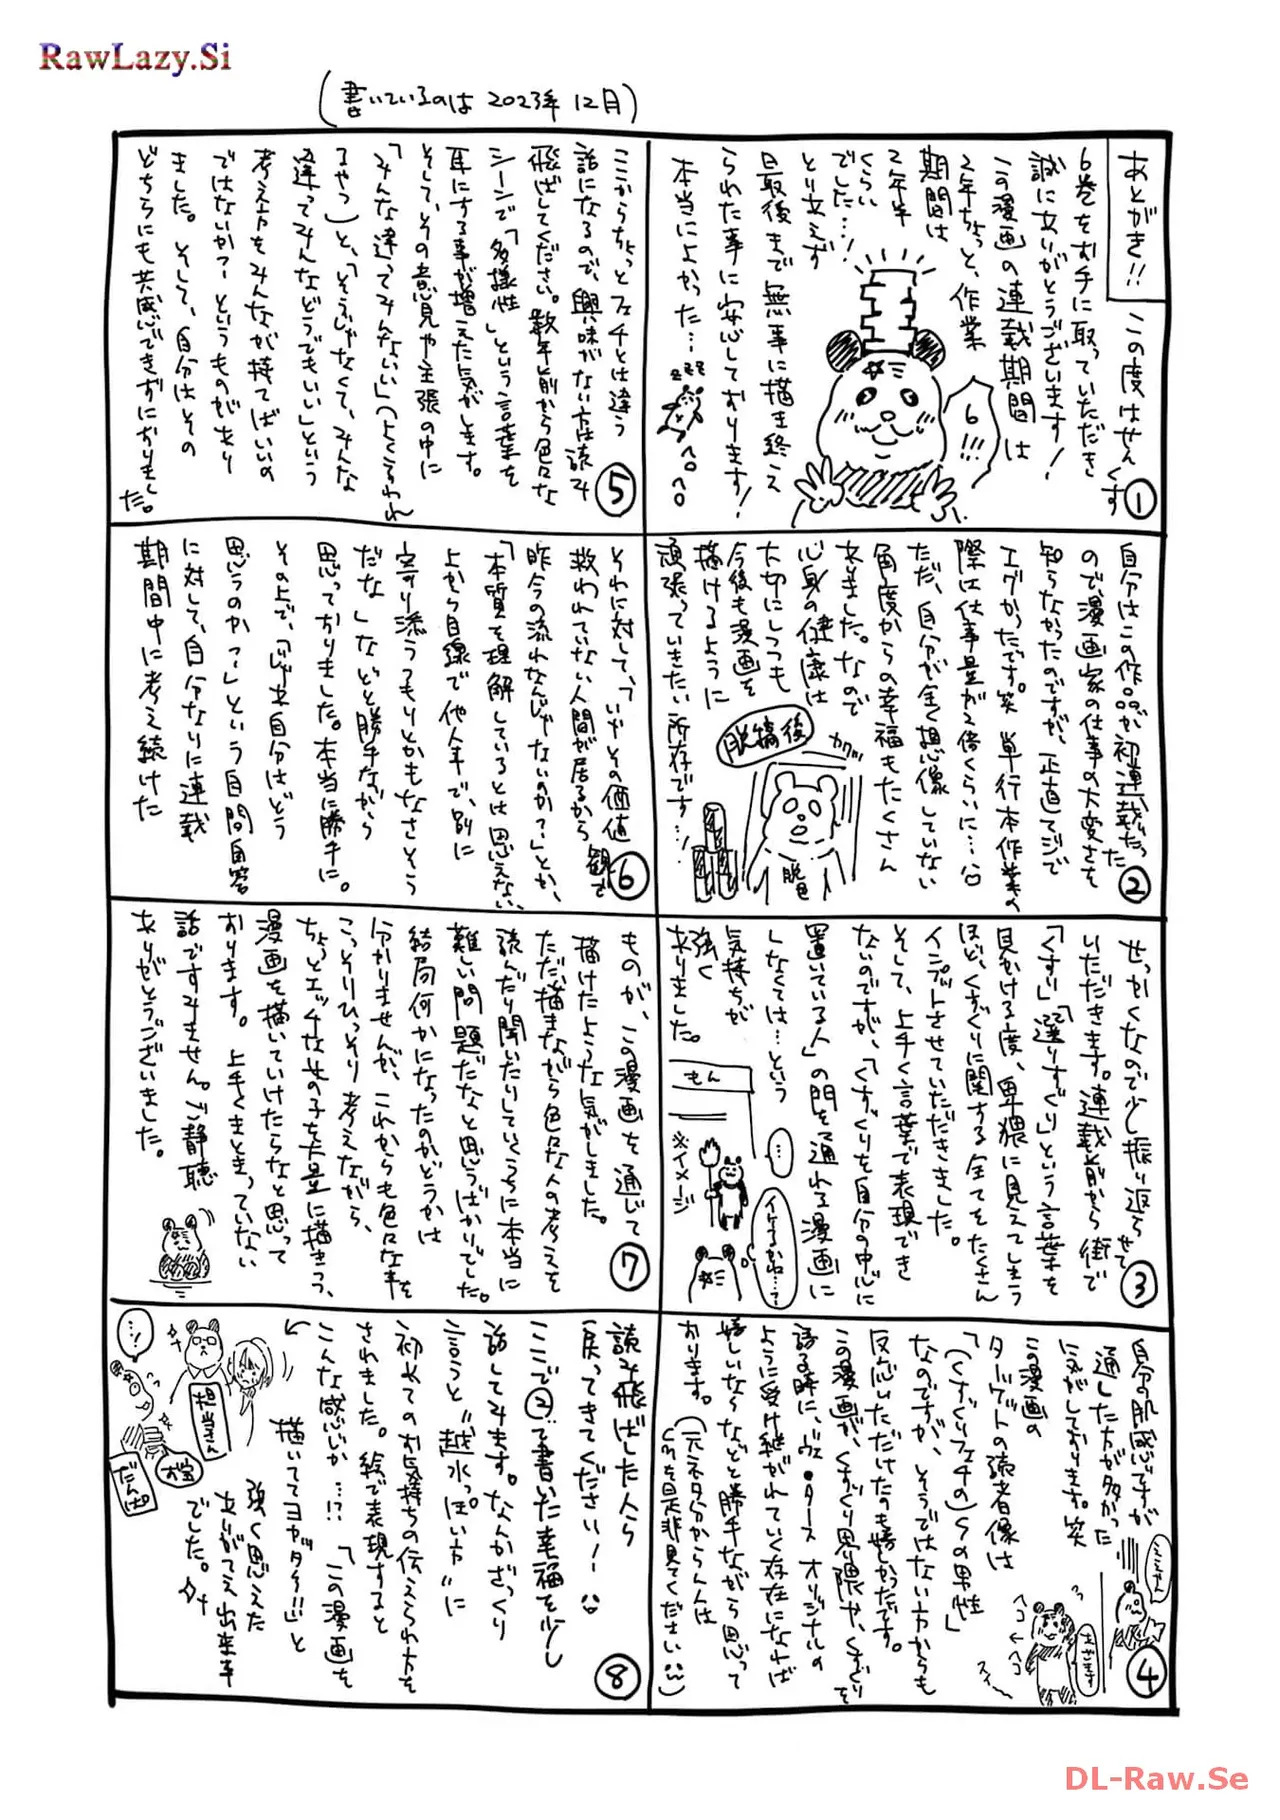 RawLazy.Si
(書いているのは 2023年 12月)
あとがき!!
この度はせんくす
6巻をお手に取っていただき
誠にありがとうございます!
この漫画の連載期間は
2年ちょっと、作業
期間は
2年半
くらい
でした…!
とりあえず
最後まで無事に描き終え
られた事に安心しております!
本当によかった…
6!!!
①
自分はこの作品が初連載だった
ので、漫画家の仕事の大変さを
知らなかったのですが、正直マジで
エグかったです。笑 単行本作業の
際は仕事量が2倍くらいに…
ただ、自分が全く想像していない
角度からの幸福もたくさん
ありました。なので
心身の健康は
大切にしつつも
今後も漫画を
描けるように
頑張っていきたい所存です…!
脱稿後
②
せっかくなので少し振り返らせて
いただきます。連載前から街で
「くすり」「選りすぐり」という言葉を
見かける度、卑猥に見えてしまう
ほど、くすぐりに関する全てをたくさん
インプットさせていただきました。
そして、上手く言葉で表現でき
ないのですが、「くすぐりを自分の中心に
置いている人」の門を通れる漫画に
しなくては…という
気持ちが
強く
ありました。
もん
※イメージ
…
イケるかね…?
③
自分の肌感ですが
通した方が多かった
気がしております。笑
この漫画の
ターゲットの読者像は
「(くすぐりフェチの)Sの男性」
なのですが、そうではない方からも
反応いただけたのも嬉しかったです。
この漫画が、くすぐり界隈や、くすぐりを
語る時に、ヴェ・タース オリジナルの
ように受け継がれていく存在になれば
嬉しいななどと勝手ながら思って
おります。(元ネタ分からん人は
CMを是非見てください)
ええやん
④
ここからちょっとフェチとは違う
話になるので、興味がない方は読み
飛ばしてください。数年前から色々な
シーンで「多様性」という言葉を
耳にする事が増えた気がします。
そして、その意見や主張の中に
「みんな違ってみんないい」(よく言われ
るやつ)と、「そうじゃなくて、みんな
違ってみんなどうでもいい」という
考え方をみんなが持てばいいの
ではないか?というものがあり
ました。そして、自分はその
どちらにも共感できずにおりまし
た。
⑤
それに対して、「いやその価値観で
救われていない人間が居るから
昨今の流れなんじゃないのか?」とか、
「本質を理解しているとは思えない、
上から目線で他人事で、別に
寄り添うつもりとかもなさそう
だな」などと勝手ながら
思っておりました。本当に勝手に。
その上で、「じゃあ自分はどう
思うのか?」という自問自答
に対して、自分なりに連載
期間中に考え続けた
⑥
ものが、この漫画を通じて
描けたような気がしました。
ただ、描きながら色々な人の考えを
読んだり聞いたりしていくうちに本当に
難しい問題だなと思うばかりでした。
結局何かになったのかどうかは
分かりませんが、これからも色々な事を
こっそりひっそり考えながら、
ちょっとエッチな女の子を大量に描きつつ、
漫画を描いていけたらなと思って
おります。上手くまとまっていない
話ですみません。ご静聴
ありがとうございました。
⑦
読み飛ばした人ら
戻ってきてくださいー!
ここで②で書いた幸福を少し
話してみます。なんかざっくり
言うと"越水っぽい方"に
初めてのお気持ちの伝えられ方を
されました。絵で表現すると
こんな感じか…!?「この漫画を
描いててヨカッター!!」と
強く思えた
ありがてえ出来事
でした。
…!
担当さん
⑧
DL-Raw.Se